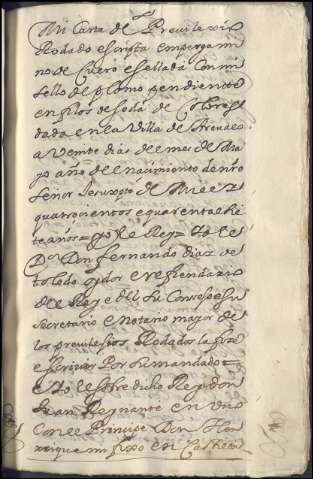 Mi Carta de Previlexio
Rodado escripta em pergami
no de Cuero e sellada Con mi
sello de plomo pendiente
en filos de seda de Colores
dada en la Villa de Arevalo
a Veinte dias del mes de Ma
yo año del nacimiento de nro
Señor Jesuxpto de Mill e
quatrocientos e quarenta e sie
te años = yo el Rey = yo el
Dor Don fernando diaz de
toledo oydor e refrendario
del Rey e del su Consejo e su
Secretario e notario mayor de
los previlexios Rodados la fize
escrivir Por su mandado =
e yo el sobre dicho Rey don
Juan Reynante en uno
Con el Principe Don Hen
rrique mi fixo en Castilla